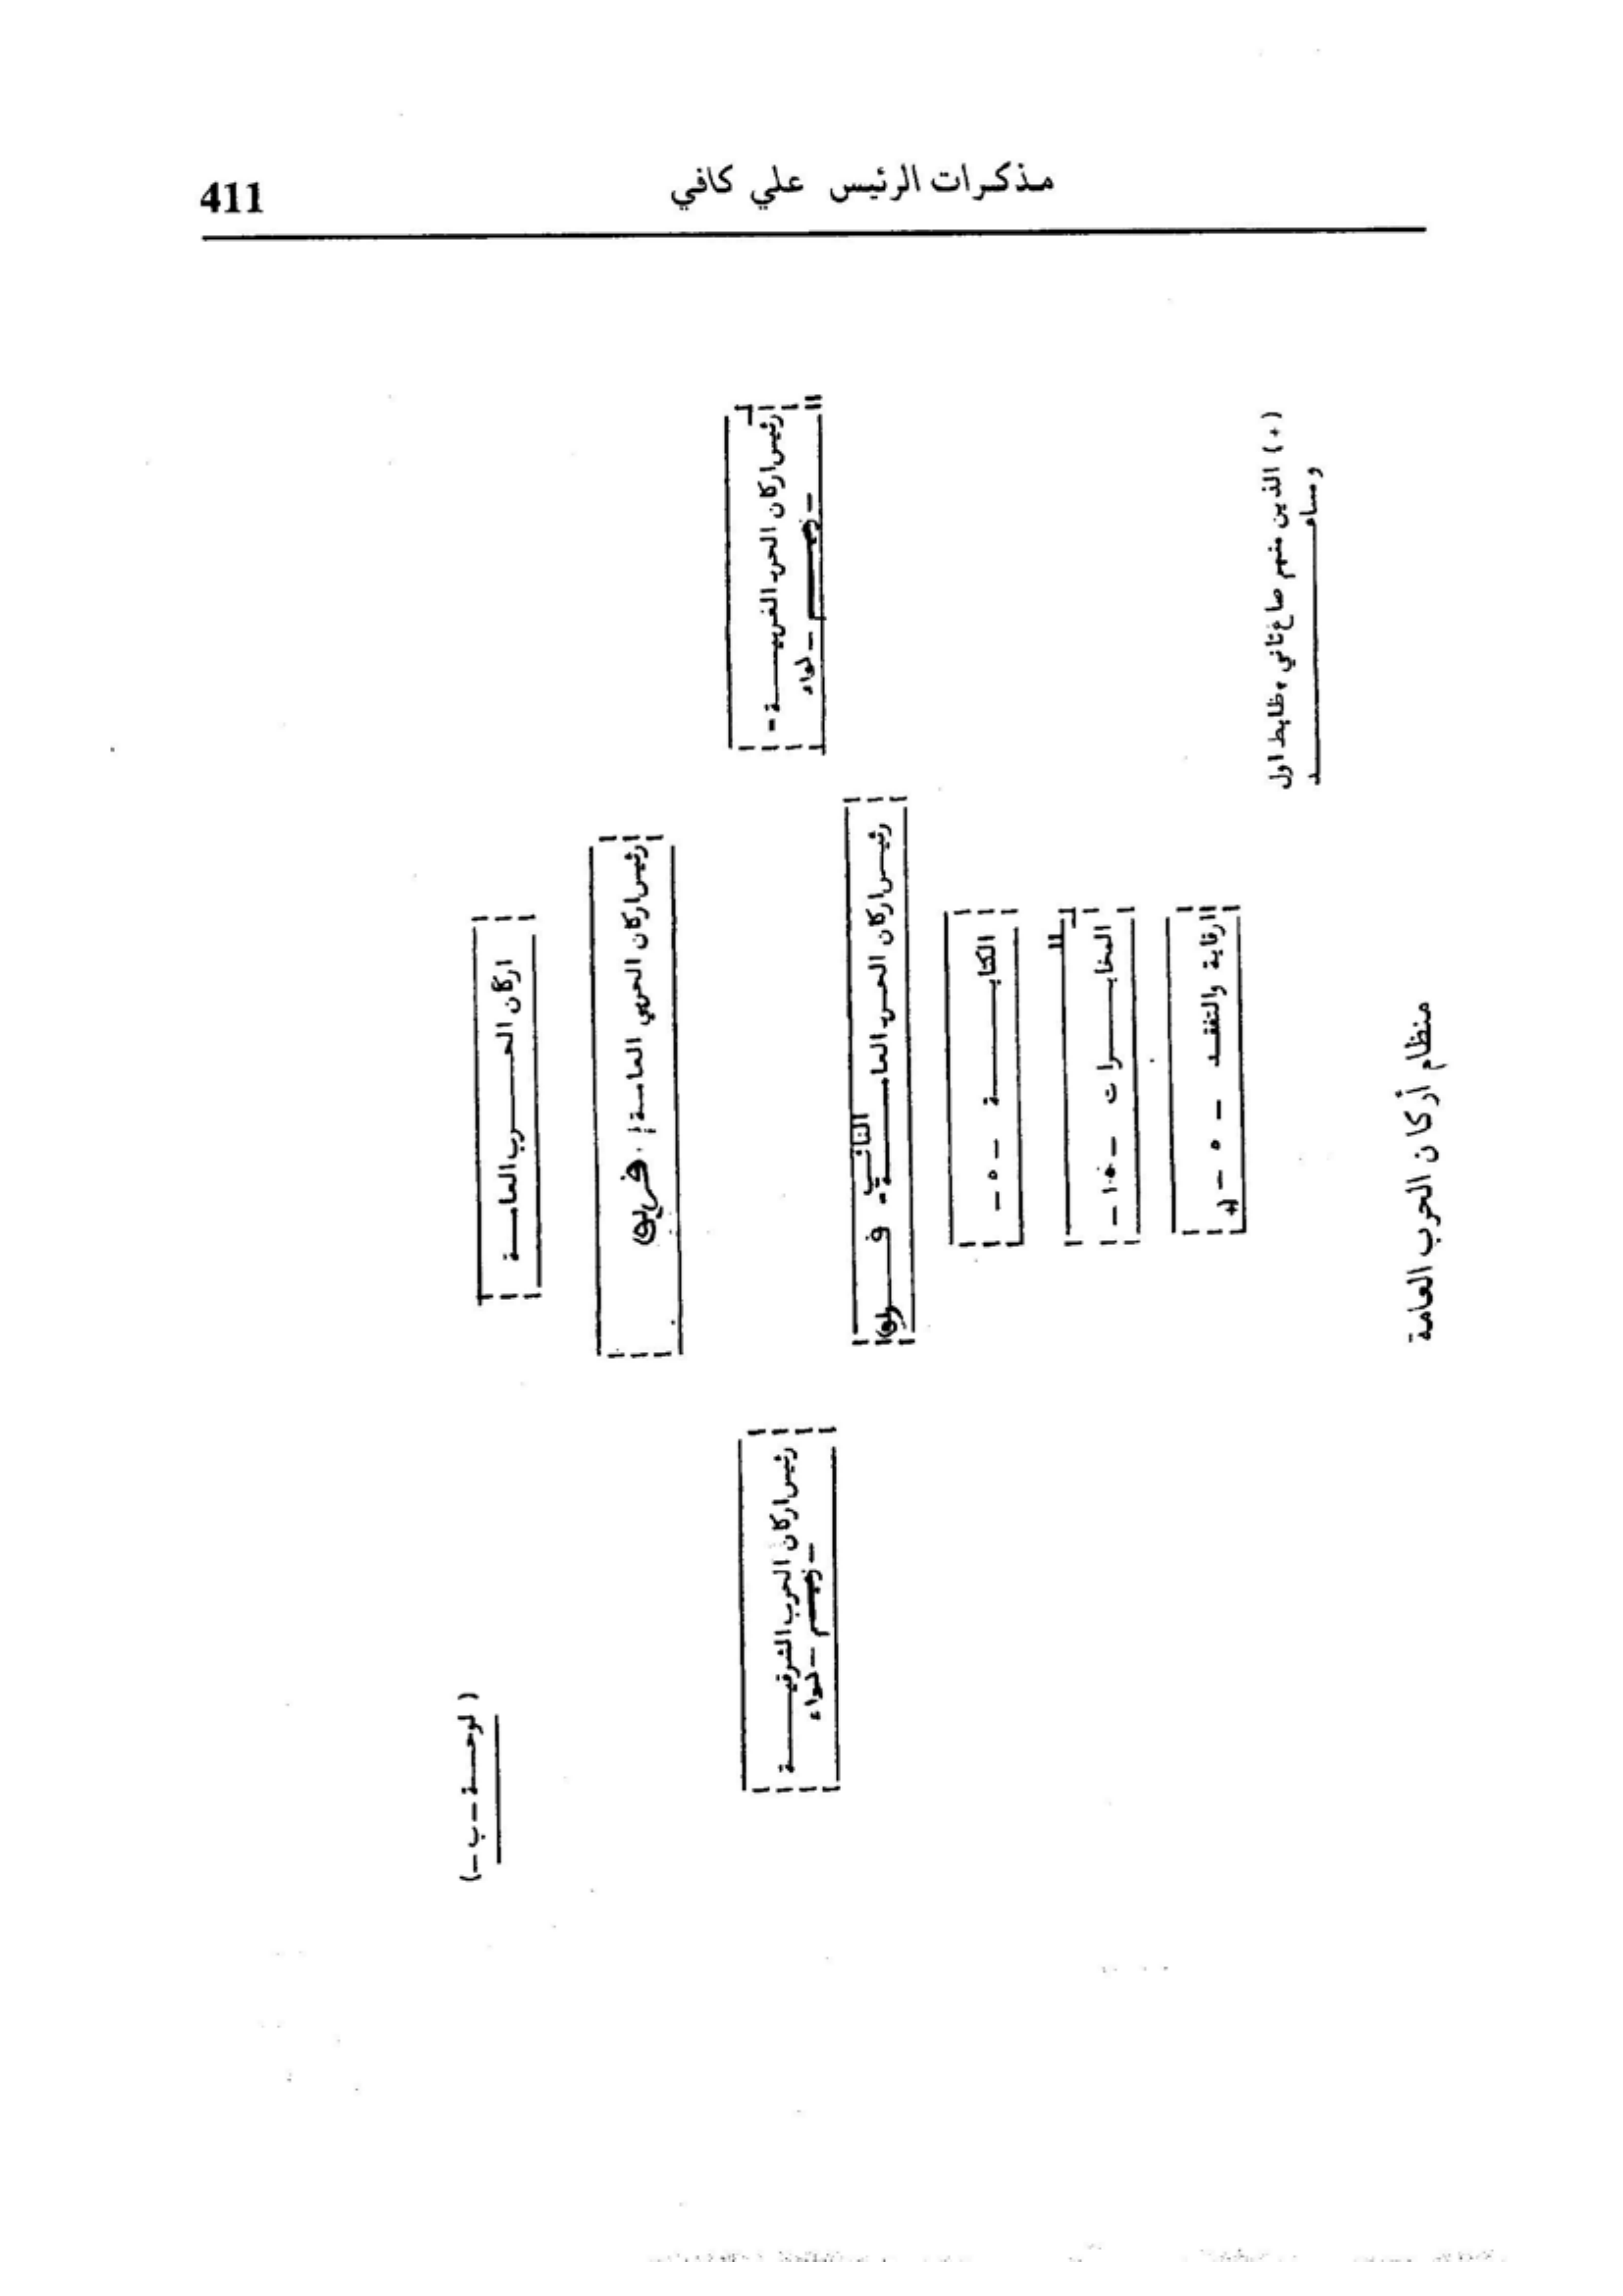 مذكرات الرئيس علي كافي
411
( لوحة - ب - )
اركان الحرب العامة
رئيس اركان الحربي العامة : . فريق
رئيس اركان الحرب الغربية -
- زعيم - لواء
رئيس اركان الحرب الشرقية
- زعيم - لواء
النائب
رئيس اركان الحرب العامة - فريق
الكتابة - ٥ -
المخابرات - ١٠ -
الرقابة والتفقد - ٥ - (+
(+) الذين منهم صاغ ثاني وظابط اول
ومساعد
منظام أركان الحرب العامة